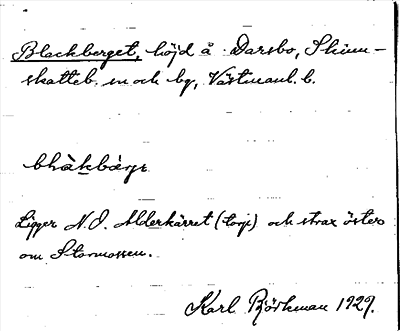 Blackberget, höjd å Darsbo, Skinn-
skatteb. sn och bg, Västmanl. l.
bl
Ligger N.O. Alderkärret (torp) och strax öster
om Stormossen.
Karl Björkman 1929.